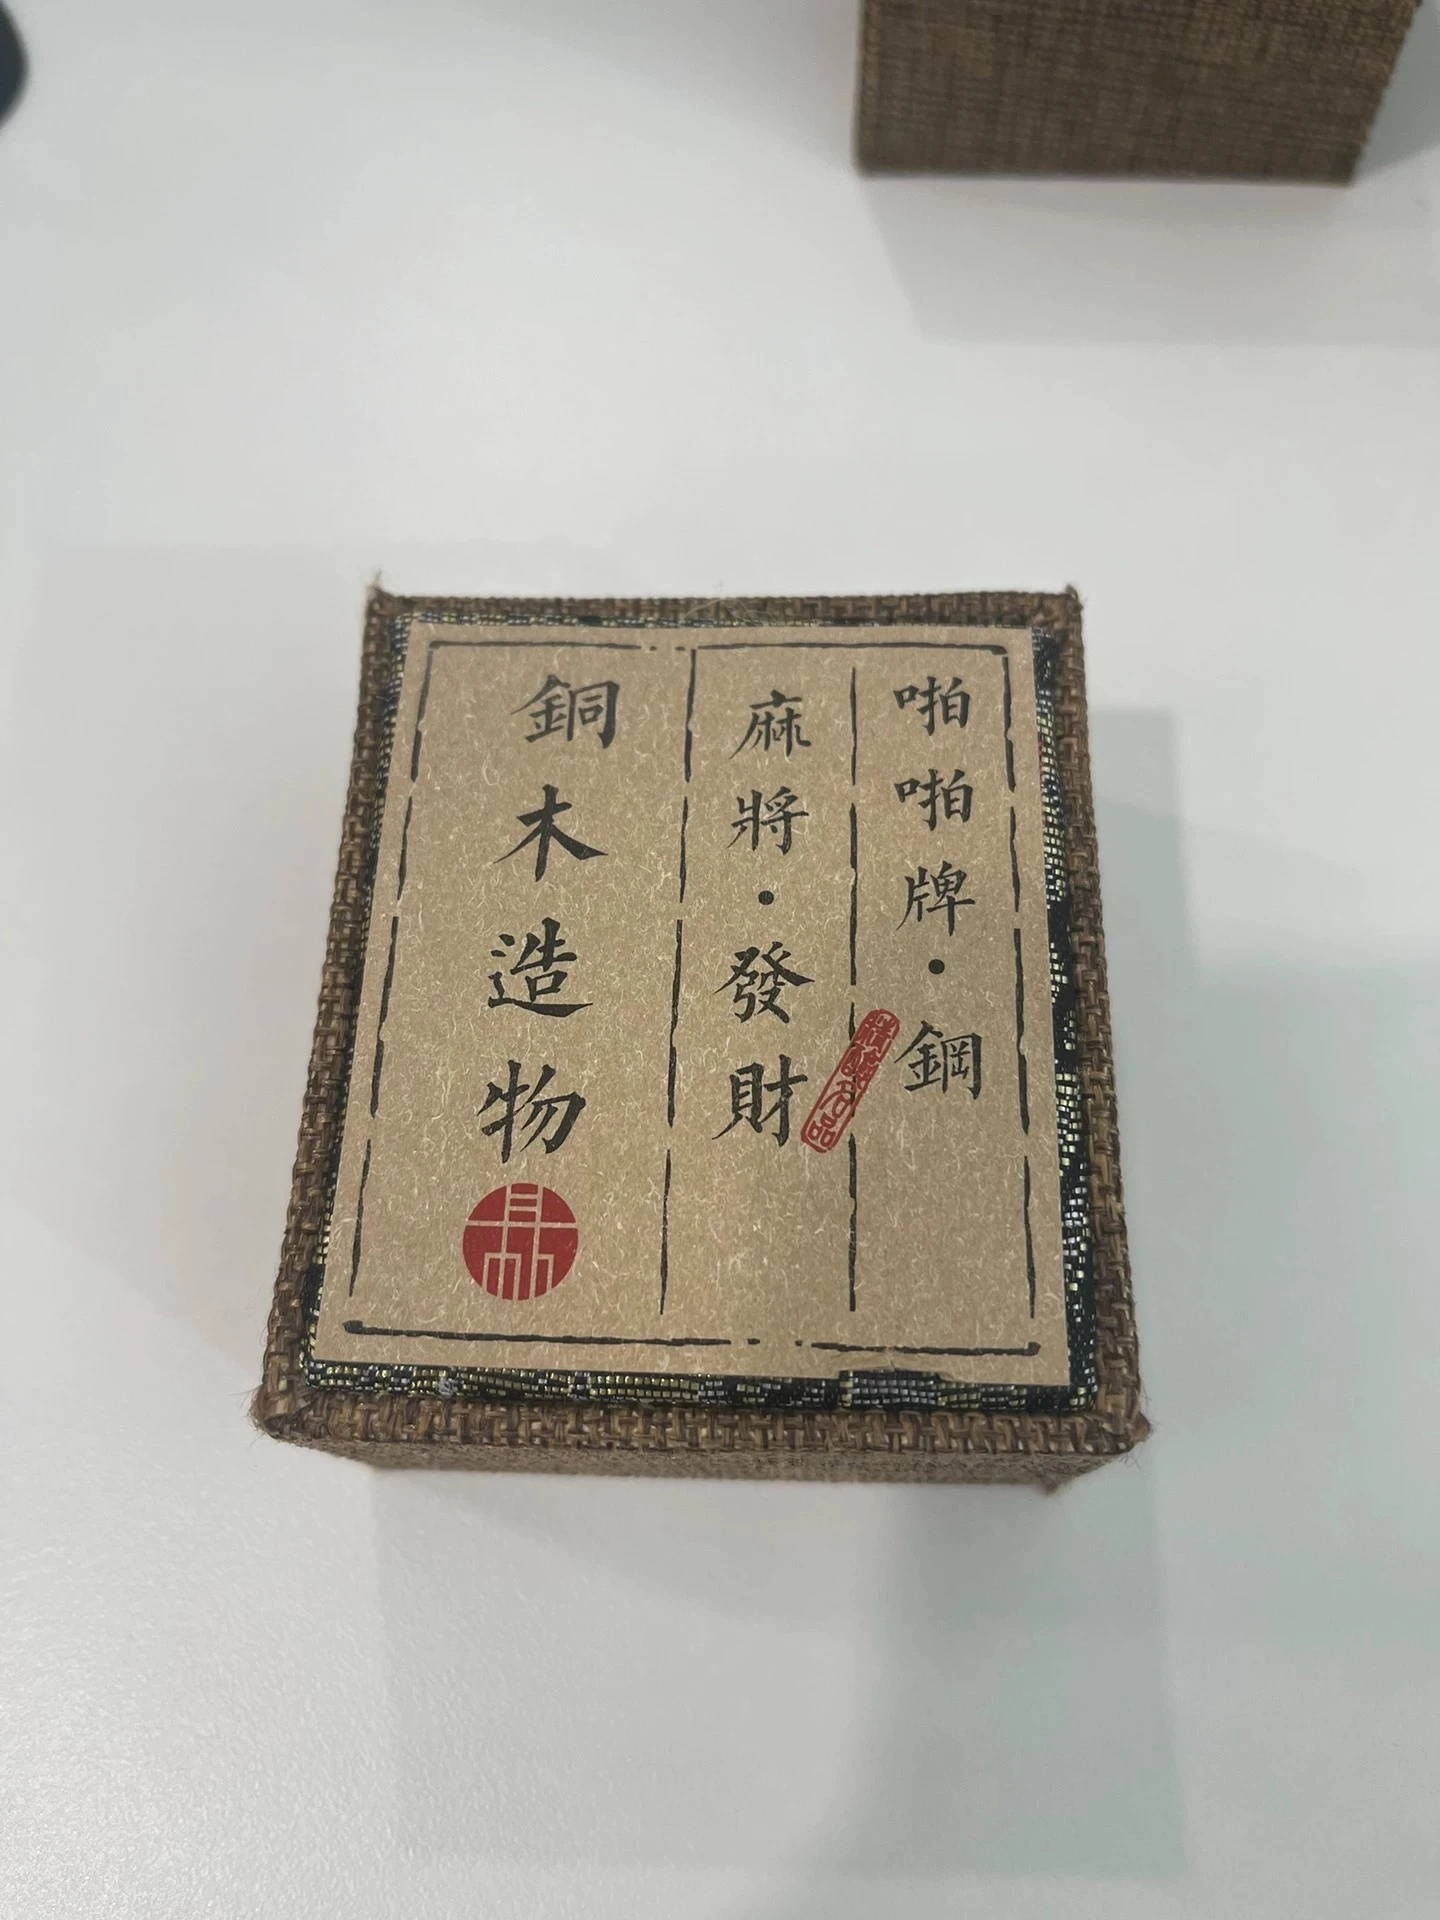 啪啪牌·鋼
麻將·發財
銅木造物